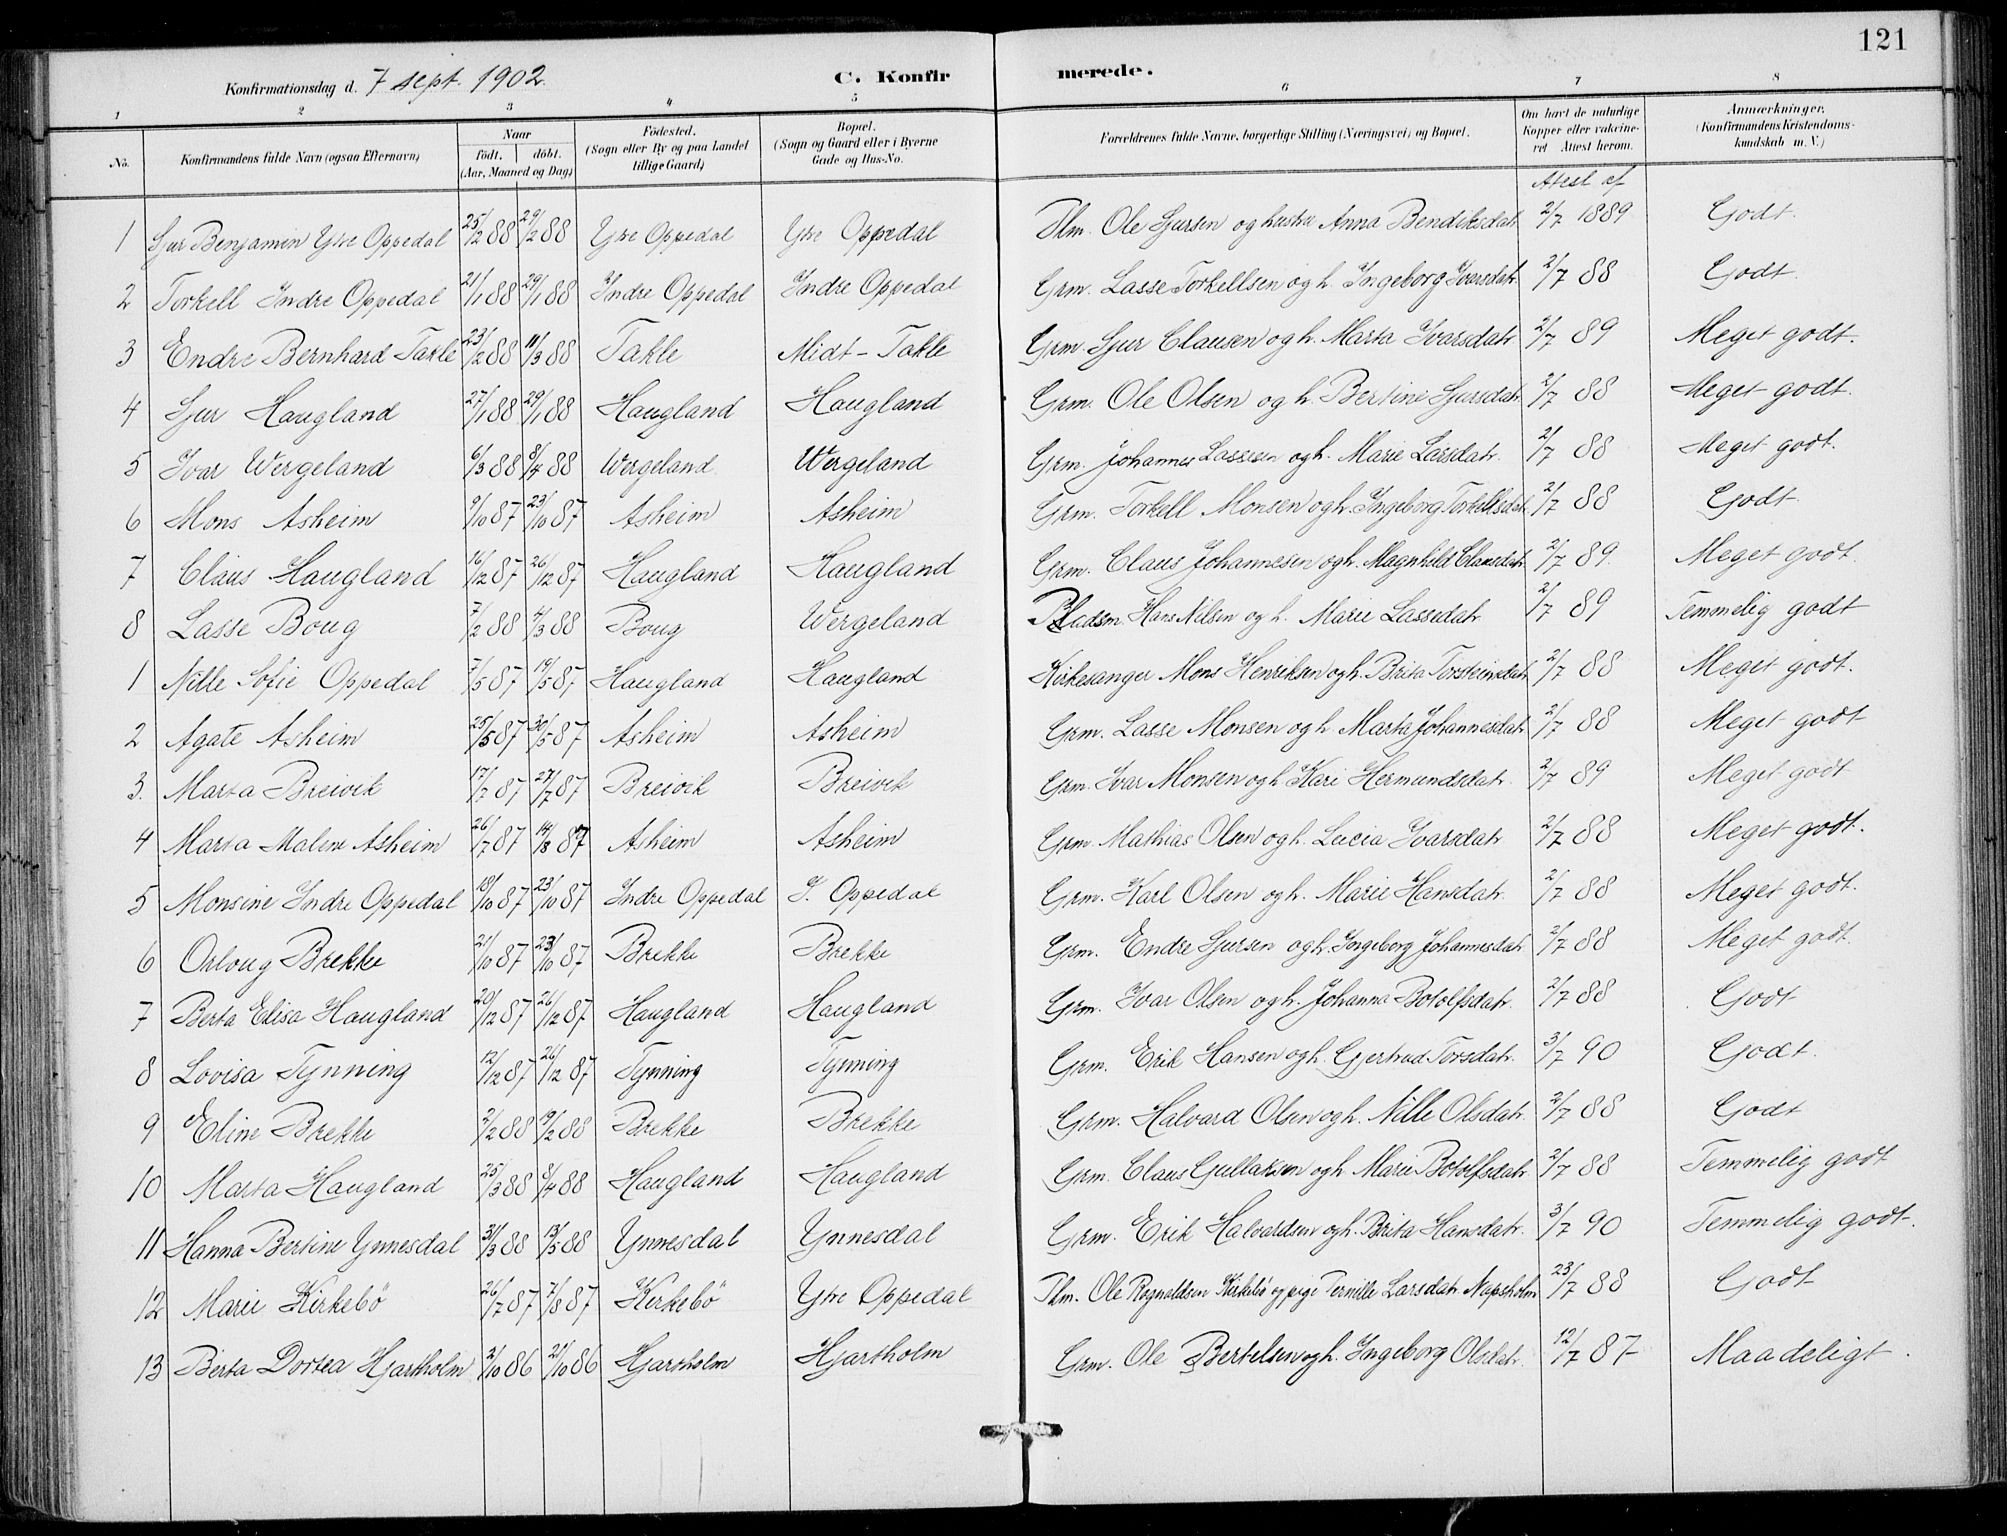 121
Konfirmationsdag d. 7 sept. 1902. C. Konfir merede.
1 2 3 4 5 6 7 8
No. Konfirmandens fulde Navn (ogsaa Efternavn) Naar födt. döbt. (Aar, Maaned og Dag) Födested. (Sogn eller By og paa Landet tillige Gaard) Bopæl. (Sogn og Gaard eller i Byerne Gade og Hus-No. Forældrenes fulde Navne, borgerlige Stilling (Næringsvei) og Bopæl. Om havt de naturlige Kopper eller vakcineret Attest herom. Anmærkninger. (Konfirmandens Kristendomskundskab m. V.)
Atest af
1 Sjur Benjamin Ytre Oppedal 25/2 88 29/2 88 Ytre Oppedal Ytre Oppedal Thm. Ole Sjursen og hustru Anna Bendiksdatr 2/7 1889 Godt.
2 Torkell Indre Oppedal 21/1 88 29/1 88 Indre Oppedal Indre Oppedal Grm. Lasse Torkellsen og h. Ingeborg Ivarsdatr. 2/7 88 Godt.
3 Endre Bernhard Takle 23/2 88 11/3 88 Takle Midt-Takle Grm. Sjur Clausen og h. Marta Ivarsdatr 2/7 89 Meget godt.
4 Sjur Haugland 27/1 88 29/1 88 Haugland Haugland Grm. Ole Olsen og h. Bertine Sjursdatr. 2/7 88 Meget godt.
5 Ivar Wergeland 6/3 88 8/4 88 Wergeland Wergeland Grm. Johannes Lassesen og h. Marie Larsdatr. 2/7 88 Meget godt.
6 Mons Asheim 9/10 87 23/10 87 Asheim Asheim Grm. Torkell Monsen og h. Ingeborg Torkellsdatr 2/7 88 Godt.
7 Claus Haugland 16/12 87 26/12 87 Haugland Haugland Grm. Claus Johannesen og h. Magnhild Clausdatr 2/7 89 Meget godt.
8 Lasse Boug 7/2 88 4/3 88 Boug Wergeland Pladsm. Hans Nilsen og h. Marie Lassedatr. 2/7 89 Temmelig godt
1 Nille Sofie Oppedal 7/5 87 19/5 87 Haugland Haugland Kirkesanger Mons Henriksen og h. Brita Torsteinsdatr 2/7 88 Meget godt.
2 Agate Asheim 25/5 87 30/5 87 Asheim Asheim Grm. Lasse Monsen og h. Marta Johannesdatr 2/7 88 Meget godt
3. Marta Breivik 17/7 87 27/7 87 Breivik Breivik Grm. Ivar Monsen og h. Kari Hermundsdatr. 2/7 89 Meget godt
4 Marta Malene Asheim 26/7 87 14/8 87 Asheim Asheim Grm. Mathias Olsen og h. Lucia Ivarsdatr 2/7 88 Meget godt.
5 Monsine Indre Oppedal 18/10 87 23/10 87 Indre Oppedal I. Oppedal Grm. Karl Olsen og h. Marie Hansdatr. 2/7 88 Meget godt.
6 Orloug Brekke 21/10 87 23/10 87 Brekke Brekke Grm. Endre Sjursen og h. Ingeborg Johannesdatr 2/7 88 Meget godt.
7 Berta Elisa Haugland 20/12 87 26/12 87 Haugland Haugland Grm. Ivar Olsen og h. Johanna Botolfsdatr. 2/7 88 Godt
8 Lovisa Tynning 12/12 87 26/12 87 Tynning Tynning Grm. Erik Hansen og h. Gjertrud Torsdatr. 3/7 90 Godt.
9 Eline Brekke 2/2 88 19/2 88 Brekke Brekke Grm. Halvard Olsen og h. Nille Olsdatr. 2/7 88 Godt
10 Marta Haugland 25/3 88 8/4 88 Haugland Haugland Grm. Claus Gullaksen og h. Marie Botolfsdatr 2/7 88 Temmelig godt
11 Hanna Bertine Ynnesdal 31/3 88 13/5 88 Ynnesdal Ynnesdal Grm. Erik Halvardsen og h. Brita Hansdatr. 3/7 90 Temmelig godt.
12 Marie Kirkebö 26/7 87 7/8 87 Kirkebö Ytre Oppedal Thm. Ole Regnaldsen Kirkebö og pige Pernille Larsdatr Napsholm 23/7 88 Godt
13 Berta Dortea Hjartholm 2/10 86 21/10 86 Hjartholm Hjartholm Grm. Ole Bertelsen og h. Ingeborg Olsdatr. 12/7 87 Maadeligt.